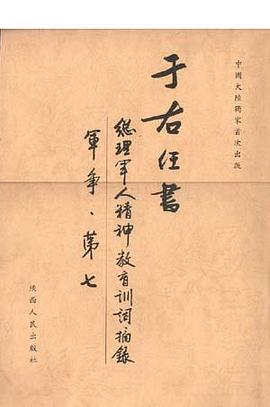 中國大陸獨家首次出版
于右任書
總理軍人精神教育訓詞摘錄
軍爭·第七
陝西人民出版社